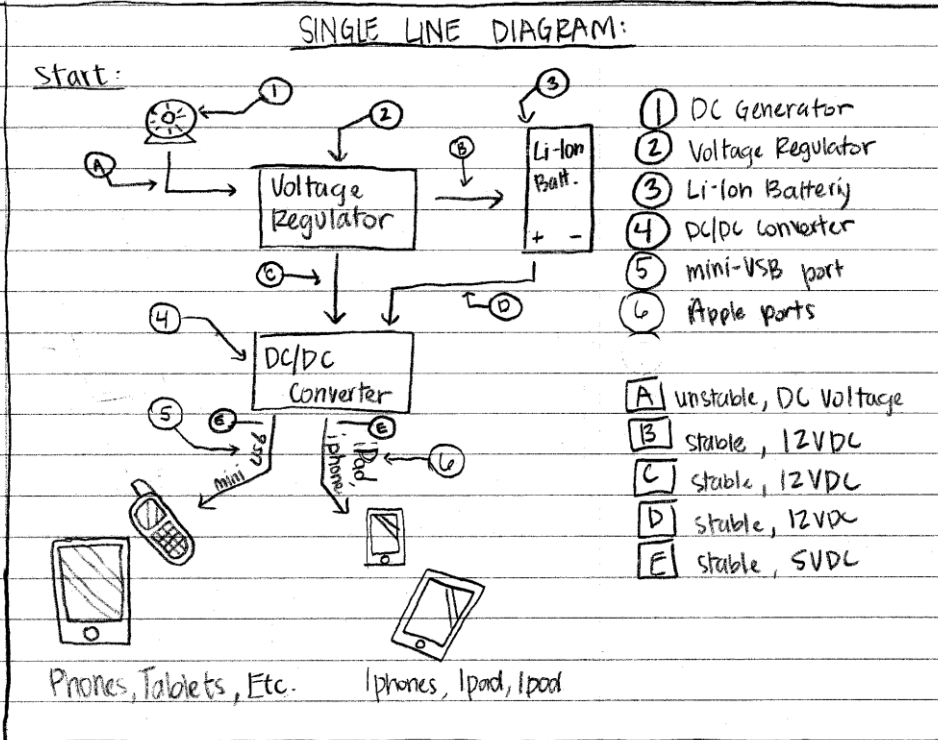 SINGLE LINE DIAGRAM:
Start:
1
2
3
A
B
Li-Ion
Batt.
+ -
Voltage
Regulator
C
D
4
DC/DC
Converter
5
E
E
mini USB
iphone, iPad,
6
Phones, Tablets, Etc.
Iphones, Ipad, Ipod
1 DC Generator
2 Voltage Regulator
3 Li-Ion Battery
4 DC/DC Converter
5 mini-USB port
6 Apple ports
A unstable, DC Voltage
B stable, 12VDC
C stable, 12VDC
D stable, 12VDC
E stable, 5VDC